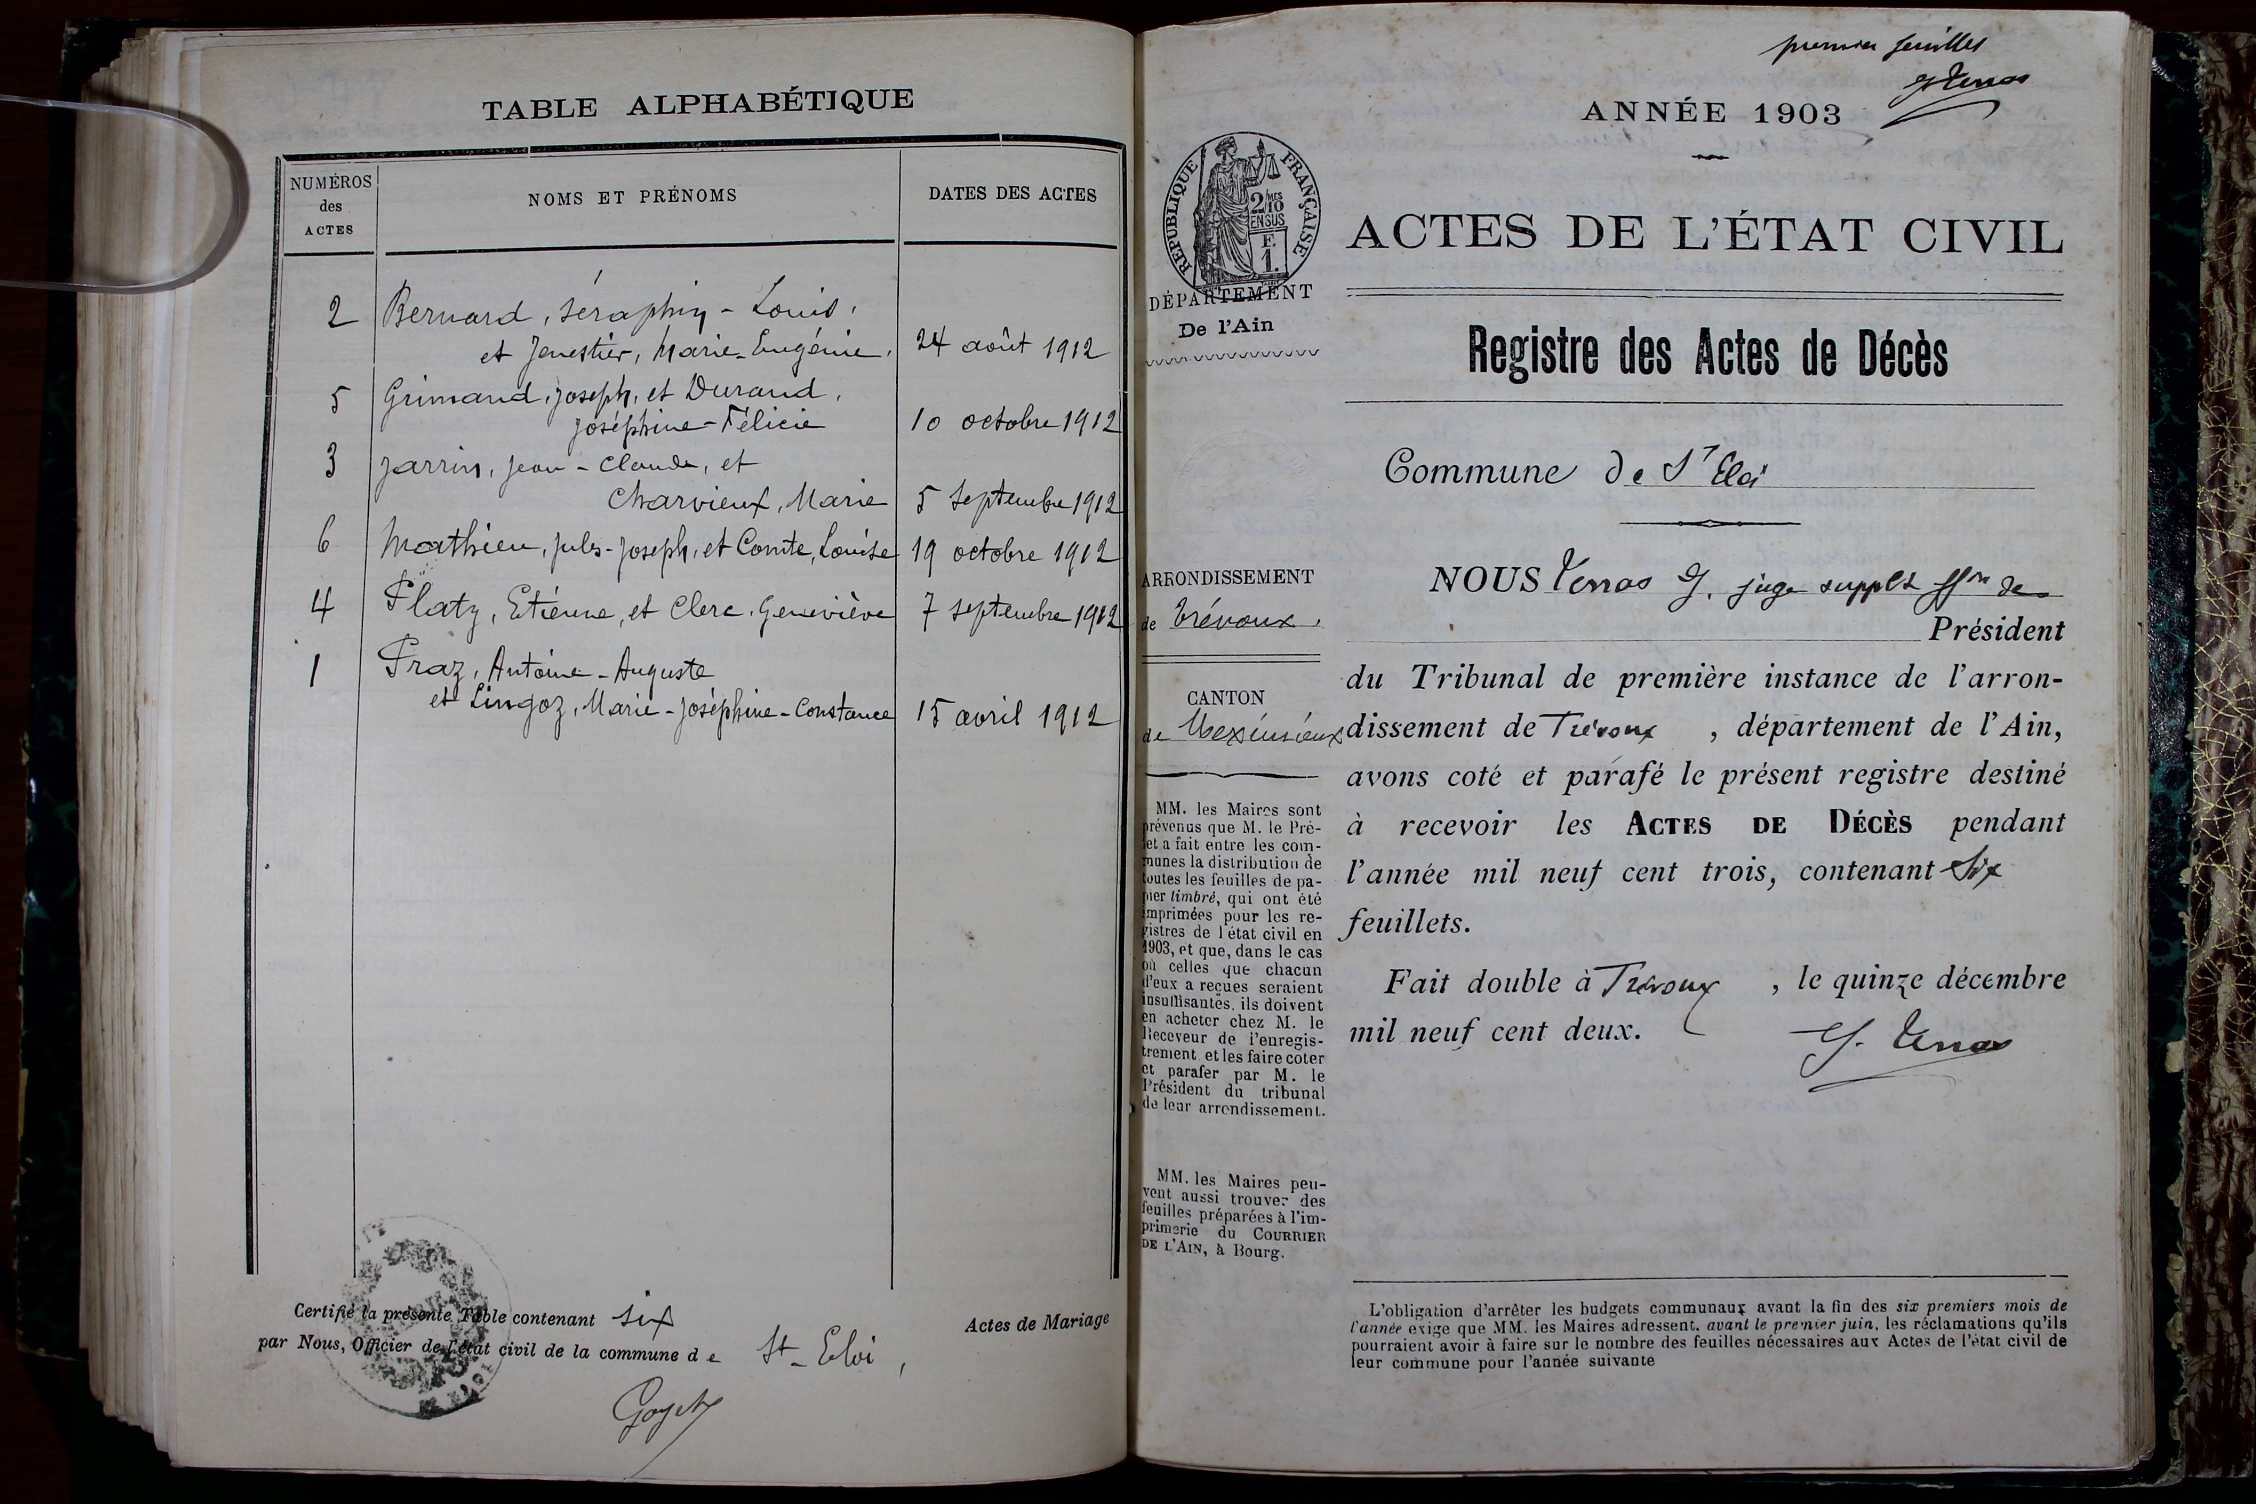 TABLE ALPHABÉTIQUE
NUMÉROS
des
ACTES
NOMS ET PRÉNOMS
DATES DES ACTES
2 Bernard, Séraphin - Louis,
et Jenestier, Marie-Eugénie, 24 août 1912
5 Grimand, Joseph, et Durand,
Joséphine-Félicie 10 octobre 1912
3 Jarrin, Jean-Claude, et
Charvieux, Marie 5 septembre 1912
6 Mathieu, Jules-Joseph, et Comte, Louise 19 octobre 1912
4 Platz, Etienne, et Clerc, Geneviève 7 septembre 1912
1 Praz, Antoine-Auguste
et Lingoz, Marie-Joséphine-Constance 15 avril 1912
Certifié la présente Table contenant six Actes de Mariage
par Nous, Officier de l'état civil de la commune de St-Eloi,
Goyet
premier feuillet
ANNÉE 1903
RÉPUBLIQUE FRANÇAISE
2/10 MES
EN SUS
F.
1.
ACTES DE L'ÉTAT CIVIL
DÉPARTEMENT
De l'Ain
Registre des Actes de Décès
Commune de St Eloi
ARRONDISSEMENT
de Trévoux,
CANTON
de Meximieux
MM. les Maires sont
prévenus que M. le Pré-
fet a fait entre les com-
munes la distribution de
toutes les feuilles de pa-
pier timbré, qui ont été
imprimées pour les re-
gistres de l'état civil en
1903, et que, dans le cas
où celles que chacun
d'eux a reçues seraient
insuffisantes, ils doivent
en acheter chez M. le
Receveur de l'enregis-
trement et les faire coter
et parafer par M. le
Président du tribunal
de leur arrondissement.
MM. les Maires peu-
vent aussi trouver des
feuilles préparées à l'im-
primerie du COURRIER
DE L'AIN, à Bourg.
NOUS juge suppl't ffon de
Président
du Tribunal de première instance de l'arron-
dissement de Trévoux, département de l'Ain,
avons coté et parafé le présent registre destiné
à recevoir les ACTES DE DÉCÈS pendant
l'année mil neuf cent trois, contenant Six
feuillets.
Fait double à Trévoux, le quinze décembre
mil neuf cent deux.
L'obligation d'arrêter les budgets communaux avant la fin des six premiers mois de
l'année exige que MM. les Maires adressent, avant le premier juin, les réclamations qu'ils
pourraient avoir à faire sur le nombre des feuilles nécessaires aux Actes de l'état civil de
leur commune pour l'année suivante